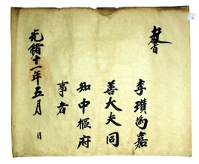 敎旨
李瓚為嘉
善大夫同
知中樞府
事者
光緖十一年五月 日